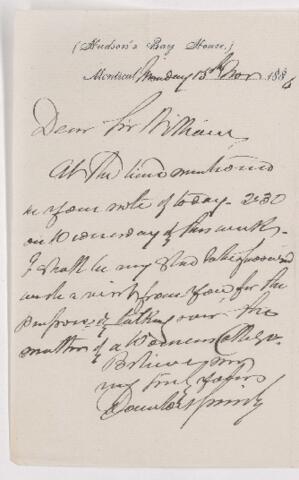 (Hudson's Bay House.)
Montreal, Monday 15th Nov 1886
Dear Sir William,
At the time mentioned
in your note of today - 2.30
on Wednesday of this week -
I shall be my
with a visit from you for the
purpose of talking over the
matter of a Womens College.
Believe me
very truly yours
Donald A Smith